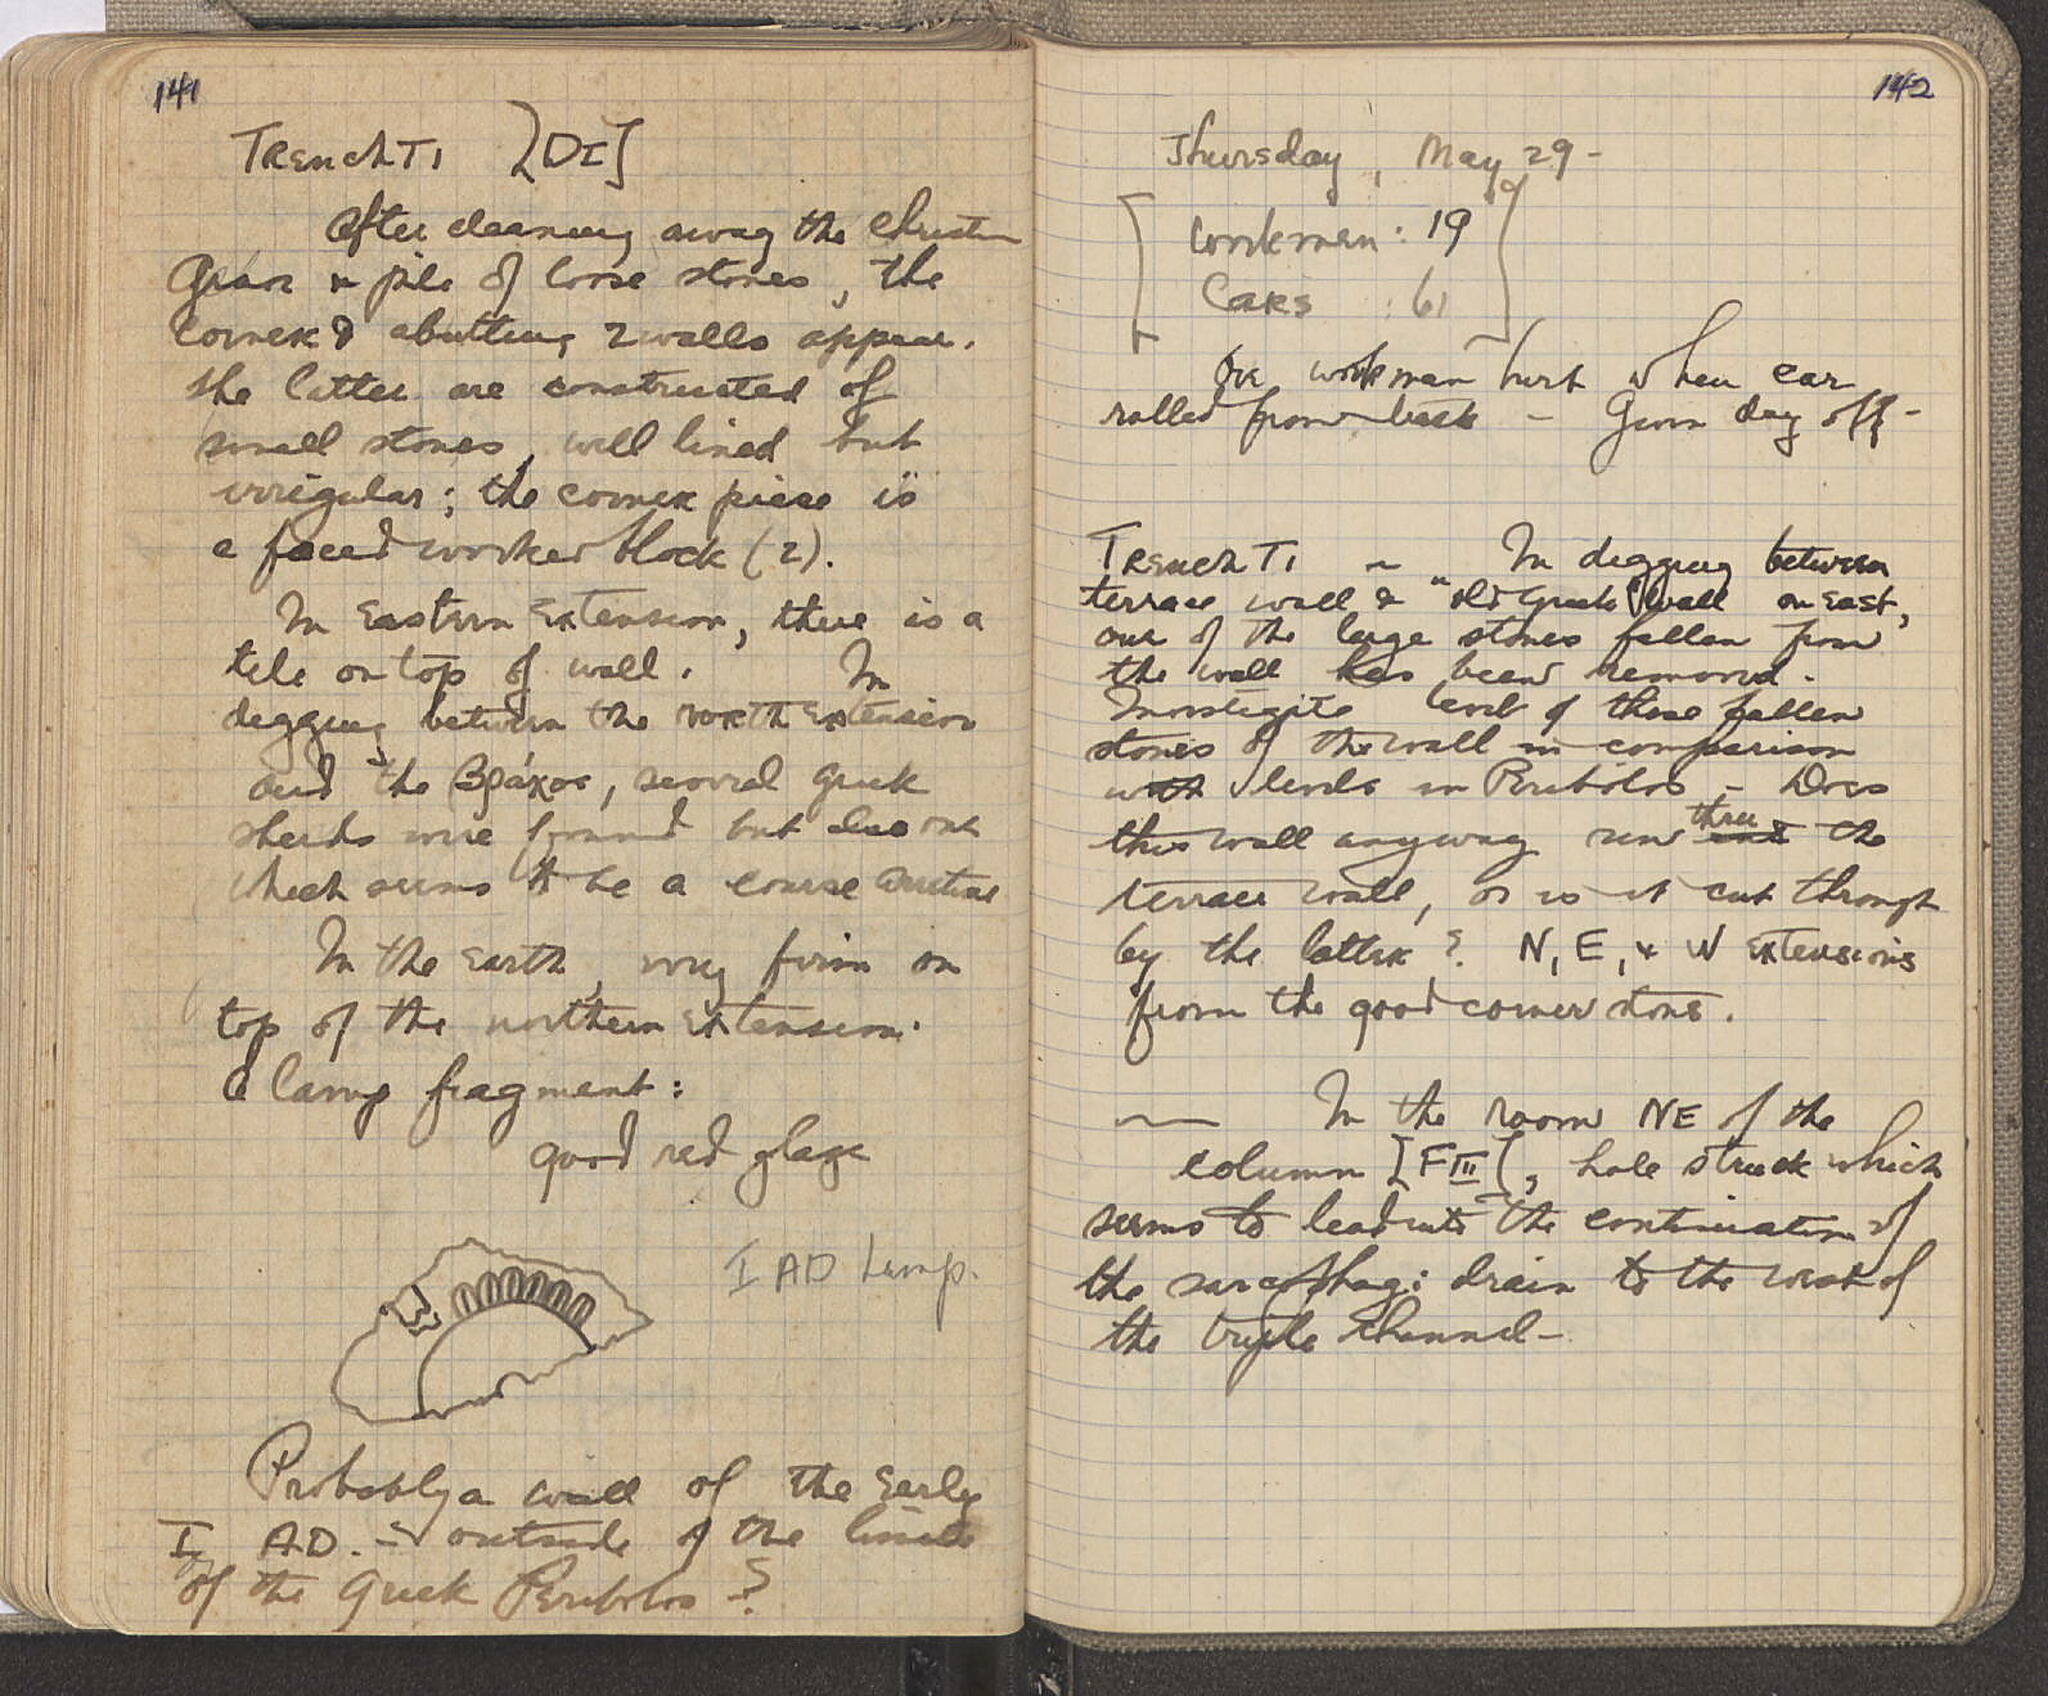 141
Trench T1 [DI]
After cleaning away the Christian
Grave & pile of loose stones, the
corner & abutting 2 walls appear.
The latter are constructed of
small stones, well lined but
irregular; the corner piece is
a faced worked block (2).
In Eastern Extension, there is a
tile on top of wall. In
digging between the North Extension
and the Βράχος, several Greek
sherds were found but also one
which seems to be a coarse
In the Earth, very firm on
top of the northern Extension.
a lamp fragment:
good red glaze
I AD Lamp.
Probably a wall of the Early
I AD. - outside of the limits
of the Greek Peribolos?
142
Thursday, May 29-
Workmen: 19
Cars : 61
One workman hurt when car
rolled from back - Given day off-
Trench T1 ~ In digging between
terrace wall & "old Greek" wall on East,
one of the large stones fallen from
the wall has been removed.
Investigate level of these fallen
stones of the wall in comparison
with levels in Peribolos - Does
this wall anyway run thru the
terrace wall, or is it cut through
by the latter? N, E, & W Extensions
from the good corner stone.
— In the room NE of the
column [FIII], hole struck which
seems to lead into the continuation of
the sarcophagi drain to the west of
the triple channel-